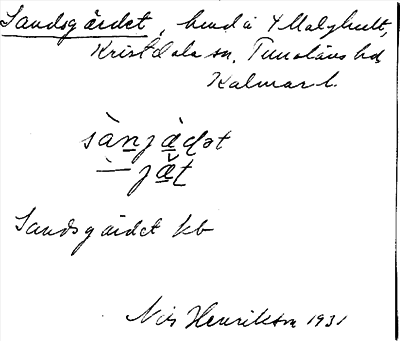 Sandsgärdet, hmd u. Malghult,
Kristdala sn, Tunaläns hd
Kalmar l.
sànjæ̀dət
– jæ̆t
Sandsgärdet kb
Nils Henrikson 1931